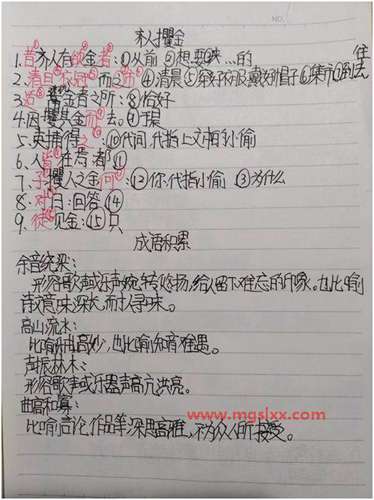 齐人攫金
1.昔齐人有欲金者:①从前 ②想要 ③...的
2.清旦衣冠而之市④清晨⑤穿衣服戴好帽子⑥集市⑦到去
3.适鬻金者之所:⑧恰好
4.因攫其金 去。⑨
5.吏捕得之:⑩代词,代指上文 小偷
6.人皆在焉:都⑪
7.子攫人之金何:⑫你.代指小偷 ⑬为什么
8.对曰:回答⑭
9.徒见金:⑮只
成语积累
余音绕梁:
形容歌声或乐声婉转悠扬,给人留下难忘的印象。也比喻
诗文意味深长,耐人寻味。
高山流水:
比喻乐曲高妙,也比喻知音难遇。
声振林木:
形容歌声或乐器声高亢洪亮。
曲高和寡:
www.mgslxx.com
比喻言论、作品等深思高雅,不为众人所接受。